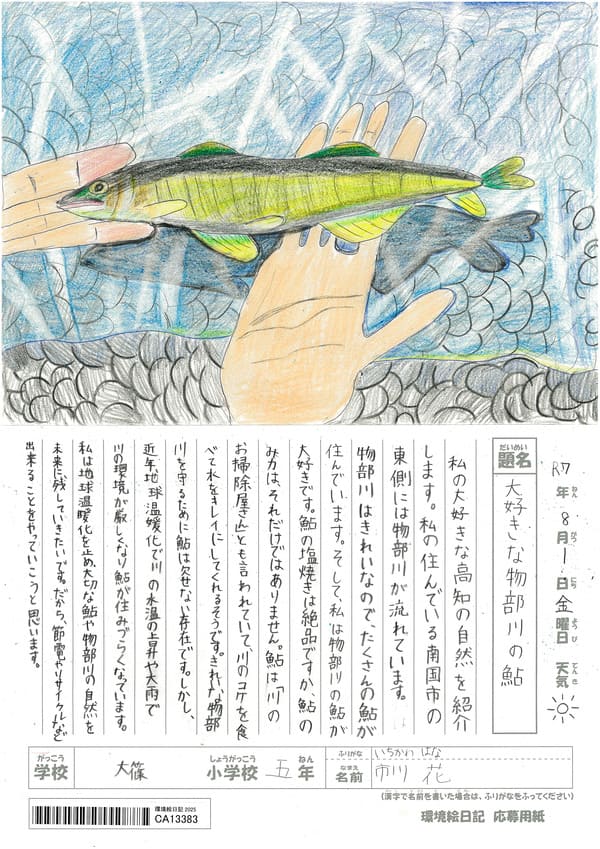 R7年8月1日金曜日 天気
ねん がつ にち よう び てん き
だいめい
題名
大好きな物部川の鮎
私の大好きな高知の自然を紹介
します。私の住んでいる南国市の
東側には物部川が流れています。
物部川はきれいなので、たくさんの鮎が
住んでいます。そして、私は物部川の鮎が
大好きです。鮎の塩焼きは絶品ですが、鮎の
み力は、それだけではありません。鮎は「川の
お掃除屋さん」とも言われていて、川のコケを食
べて水をキレイにしてくれるそうです。きれいな物部
川を守るために鮎は欠せない存在です。しかし、
近年、地球温暖化で川の水温の上昇や大雨で
川の環境が厳しくなり鮎が住みづらくなっています。
私は地球温暖化を止め、大切な鮎や物部川の自然を
未来に残していきたいです。だから、節電やリサイクルなど
出来ることをやっていこうと思います。
がっこう しょうがっこう ねん
学校 大篠 小学校 五年
ふりがな いちかわ はな
なまえ
名前 市川 花
(漢字で名前を書いた場合は、ふりがなをふってください)
環境絵日記 2025
CA13383
環境絵日記 応募用紙